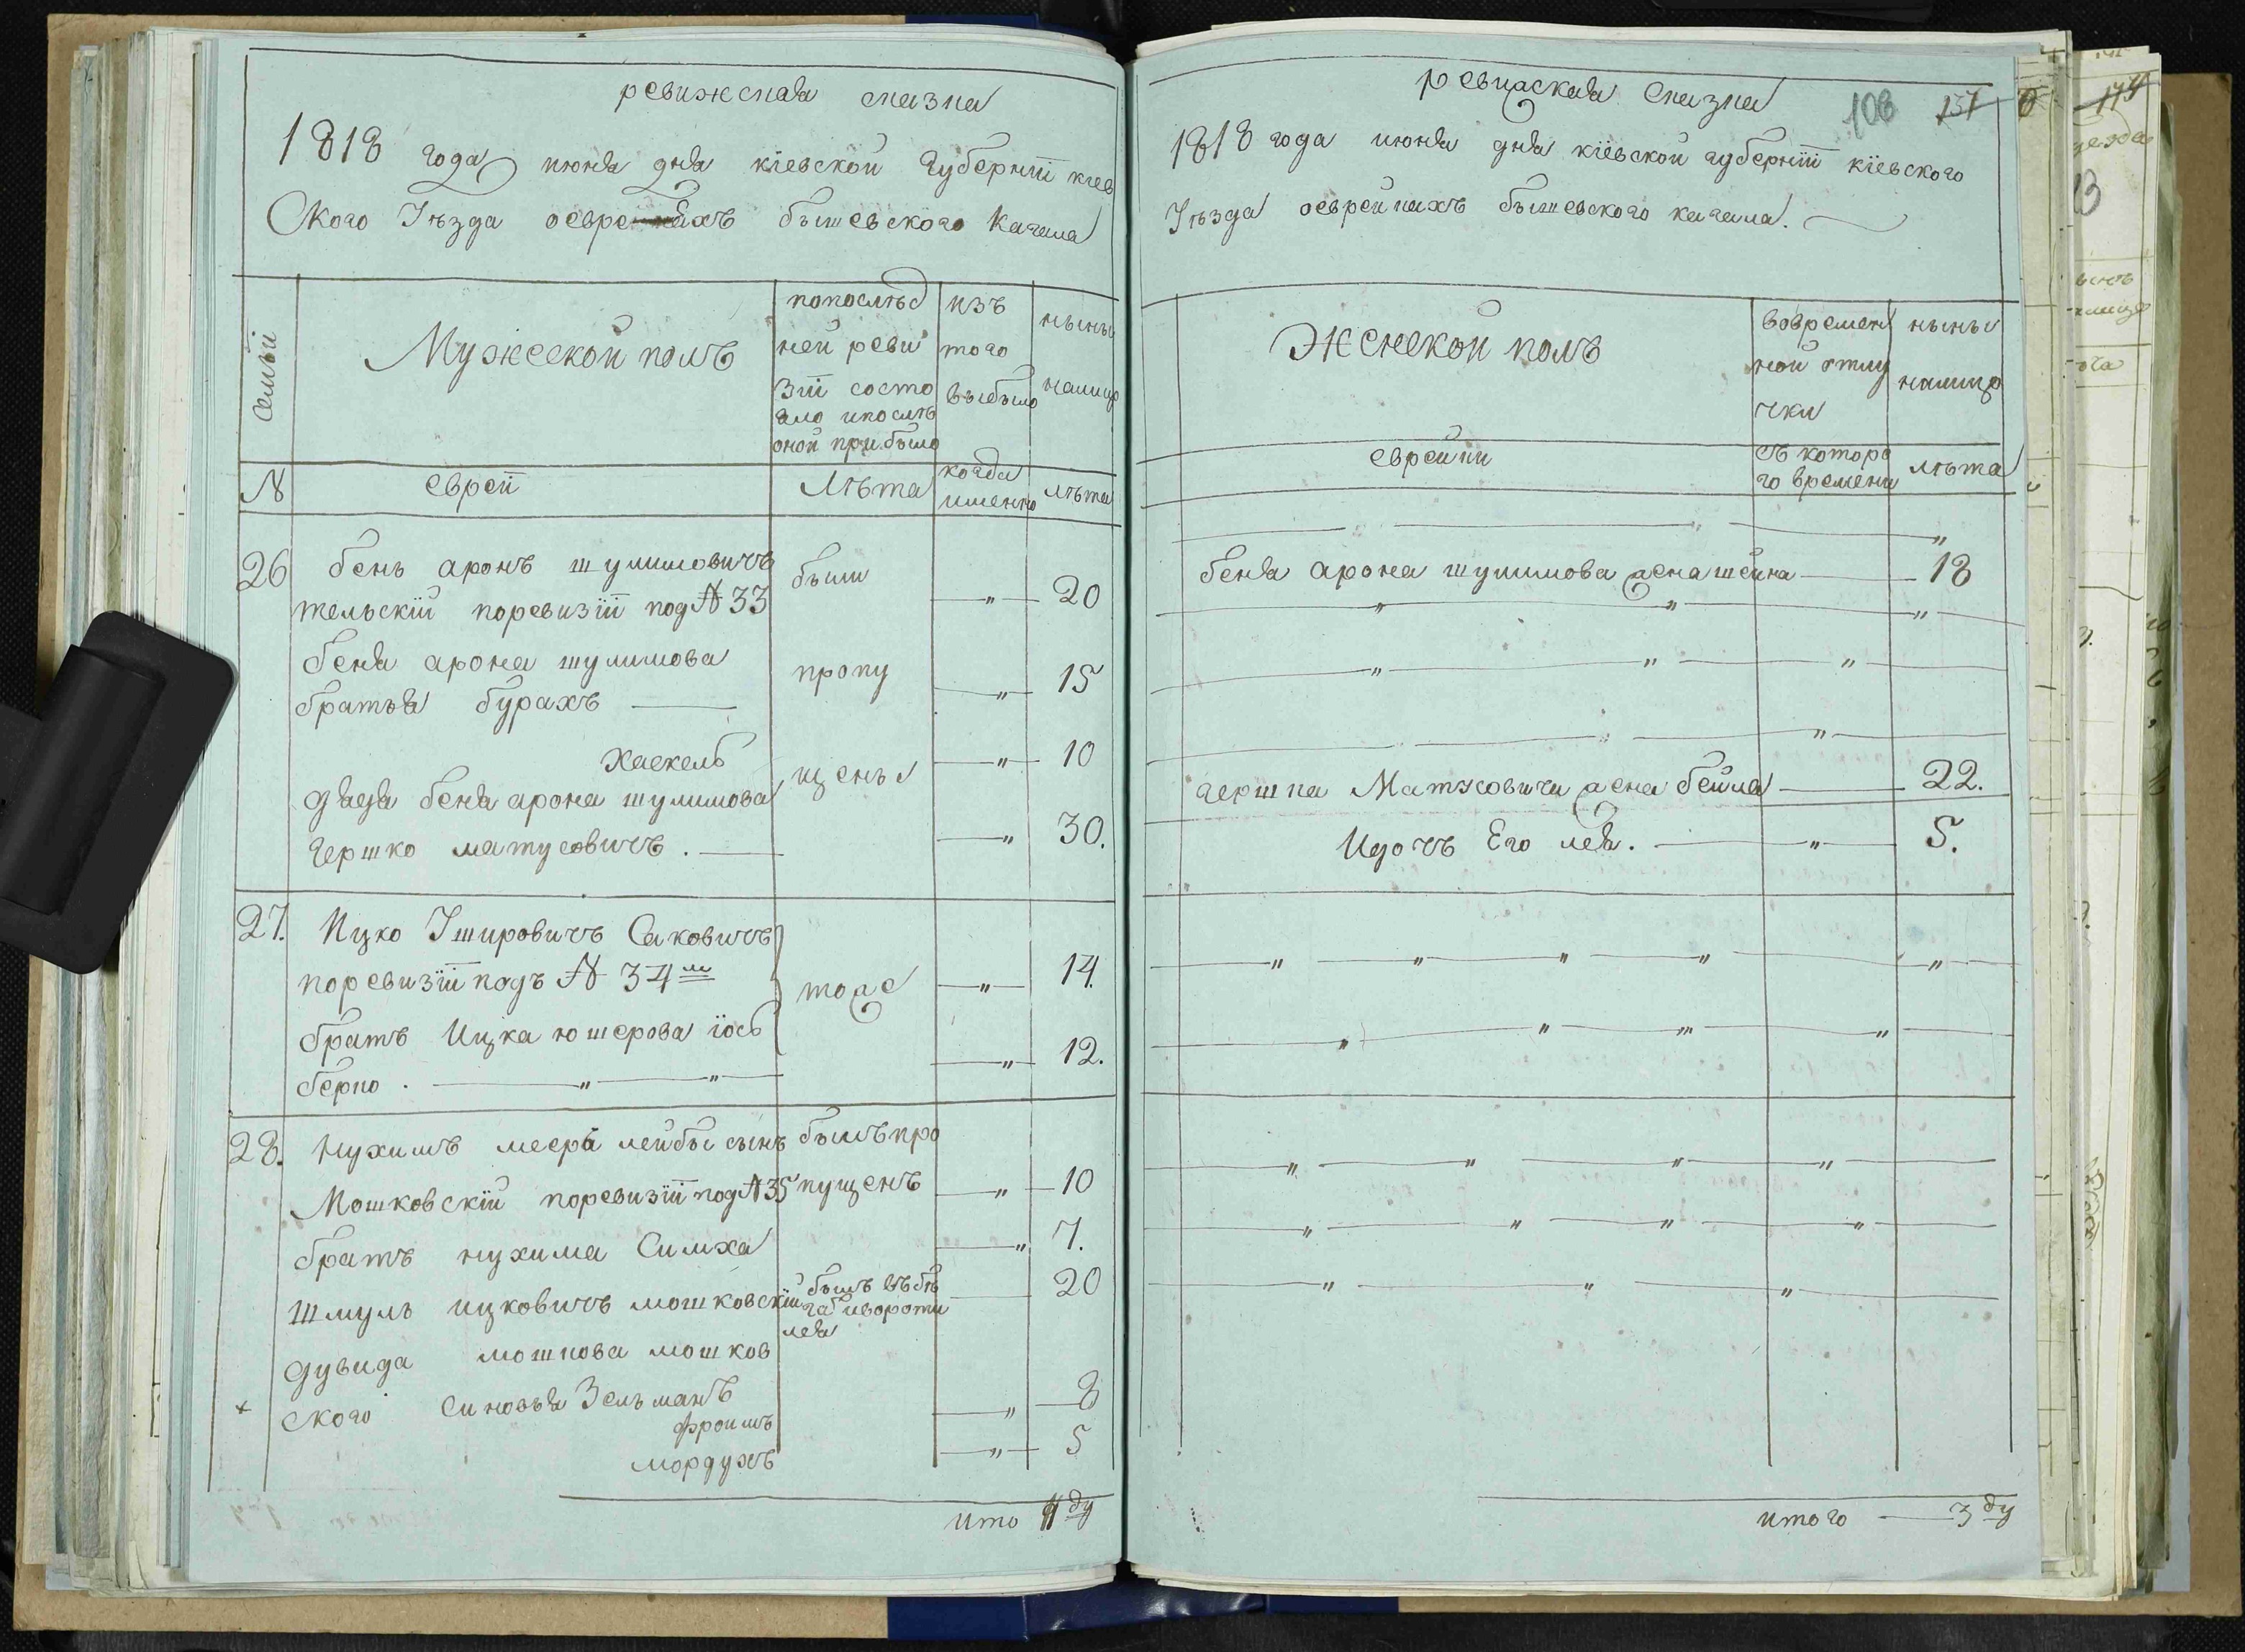 ревижская сказка
1818 года июня дня кіевской губерніи кіев
ского Уѣзда оевреяхъ бышевского Кагала
Семьи
Мужеской полъ
попослѣд
ней реви
зіи состо
яло ипослѣ
оной прибыло
изъ
того
выбыло
нынѣ
налицо
№
евреи
Лѣта
когда
именно
лѣта
26 бень аронъ шулимовичъ были
тельскій поревизіи под № 33 —„— 20
беня арона шулимова пропу
братья бурахъ —„— 15
хаскель —„— 10
дядя беня арона шулимова щены
гершко матусовичъ . —„ 30.
27. Ицко Ушировичъ Саковичъ
поревизіи подъ № 34м тоже —„— 14.
братъ Ицка юшерова іось
берко . —„— 12.
28. Нухимъ меера лейбы сынъ былъ про
Мошковскій поревизіи под № 35 пущенъ —„— 10
братъ нухима Симха —„ 7.
шмуль ицковичъ мошковскій былъ въ бѣ 20
га иворотил
лся
дувида мошкова мошков
× ского синовья Зельманъ —„— 8
фроимъ —„— 5
мордухъ
ито ду
ревизская сказка
108 137
1818 года июня дня кіевской губерніи кіевского
Уѣзда оеврейкахъ бышевского кагала.
Женской полъ
вовремен
ной отлу
чки
нынѣ
налицо
еврейки
Съ которо
го времени
лѣта
беня арона шулимова жена шейна — 18
гершка Матусовича жена бейла — 22.
И дочъ Его лея. —„— 5.
итого — 3 ду